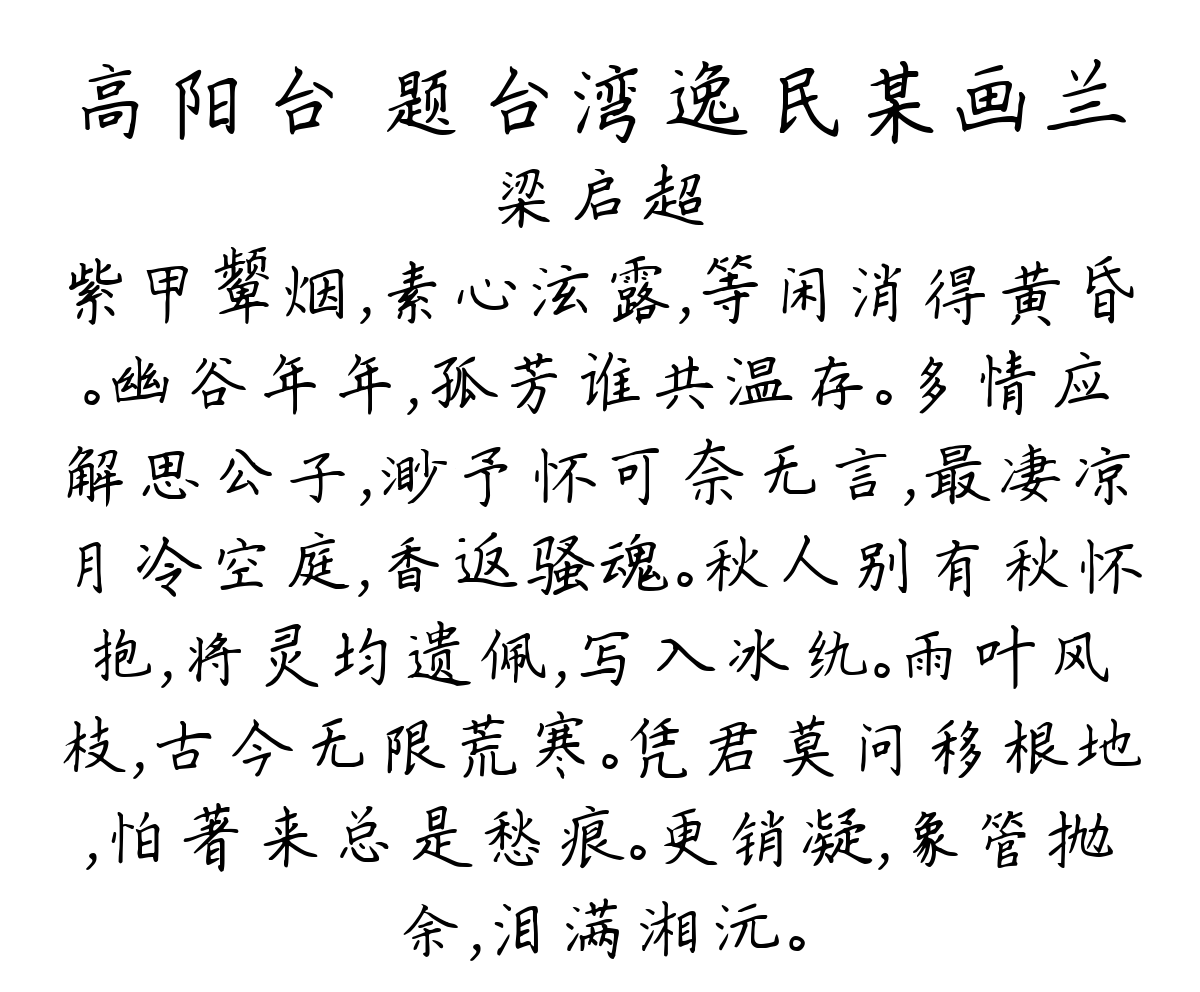 高阳台 题台湾逸民某画兰
梁启超
紫甲颦烟,素心泫露,等闲消得黄昏
。幽谷年年,孤芳谁共温存。多情应
解思公子,渺予怀可奈无言,最凄凉
月冷空庭,香返骚魂。秋人别有秋怀
抱,将灵均遗佩,写入冰纨。雨叶风
枝,古今无限荒寒。凭君莫问移根地
,怕著来总是愁痕。更销凝,象管抛
余,泪满湘沅。